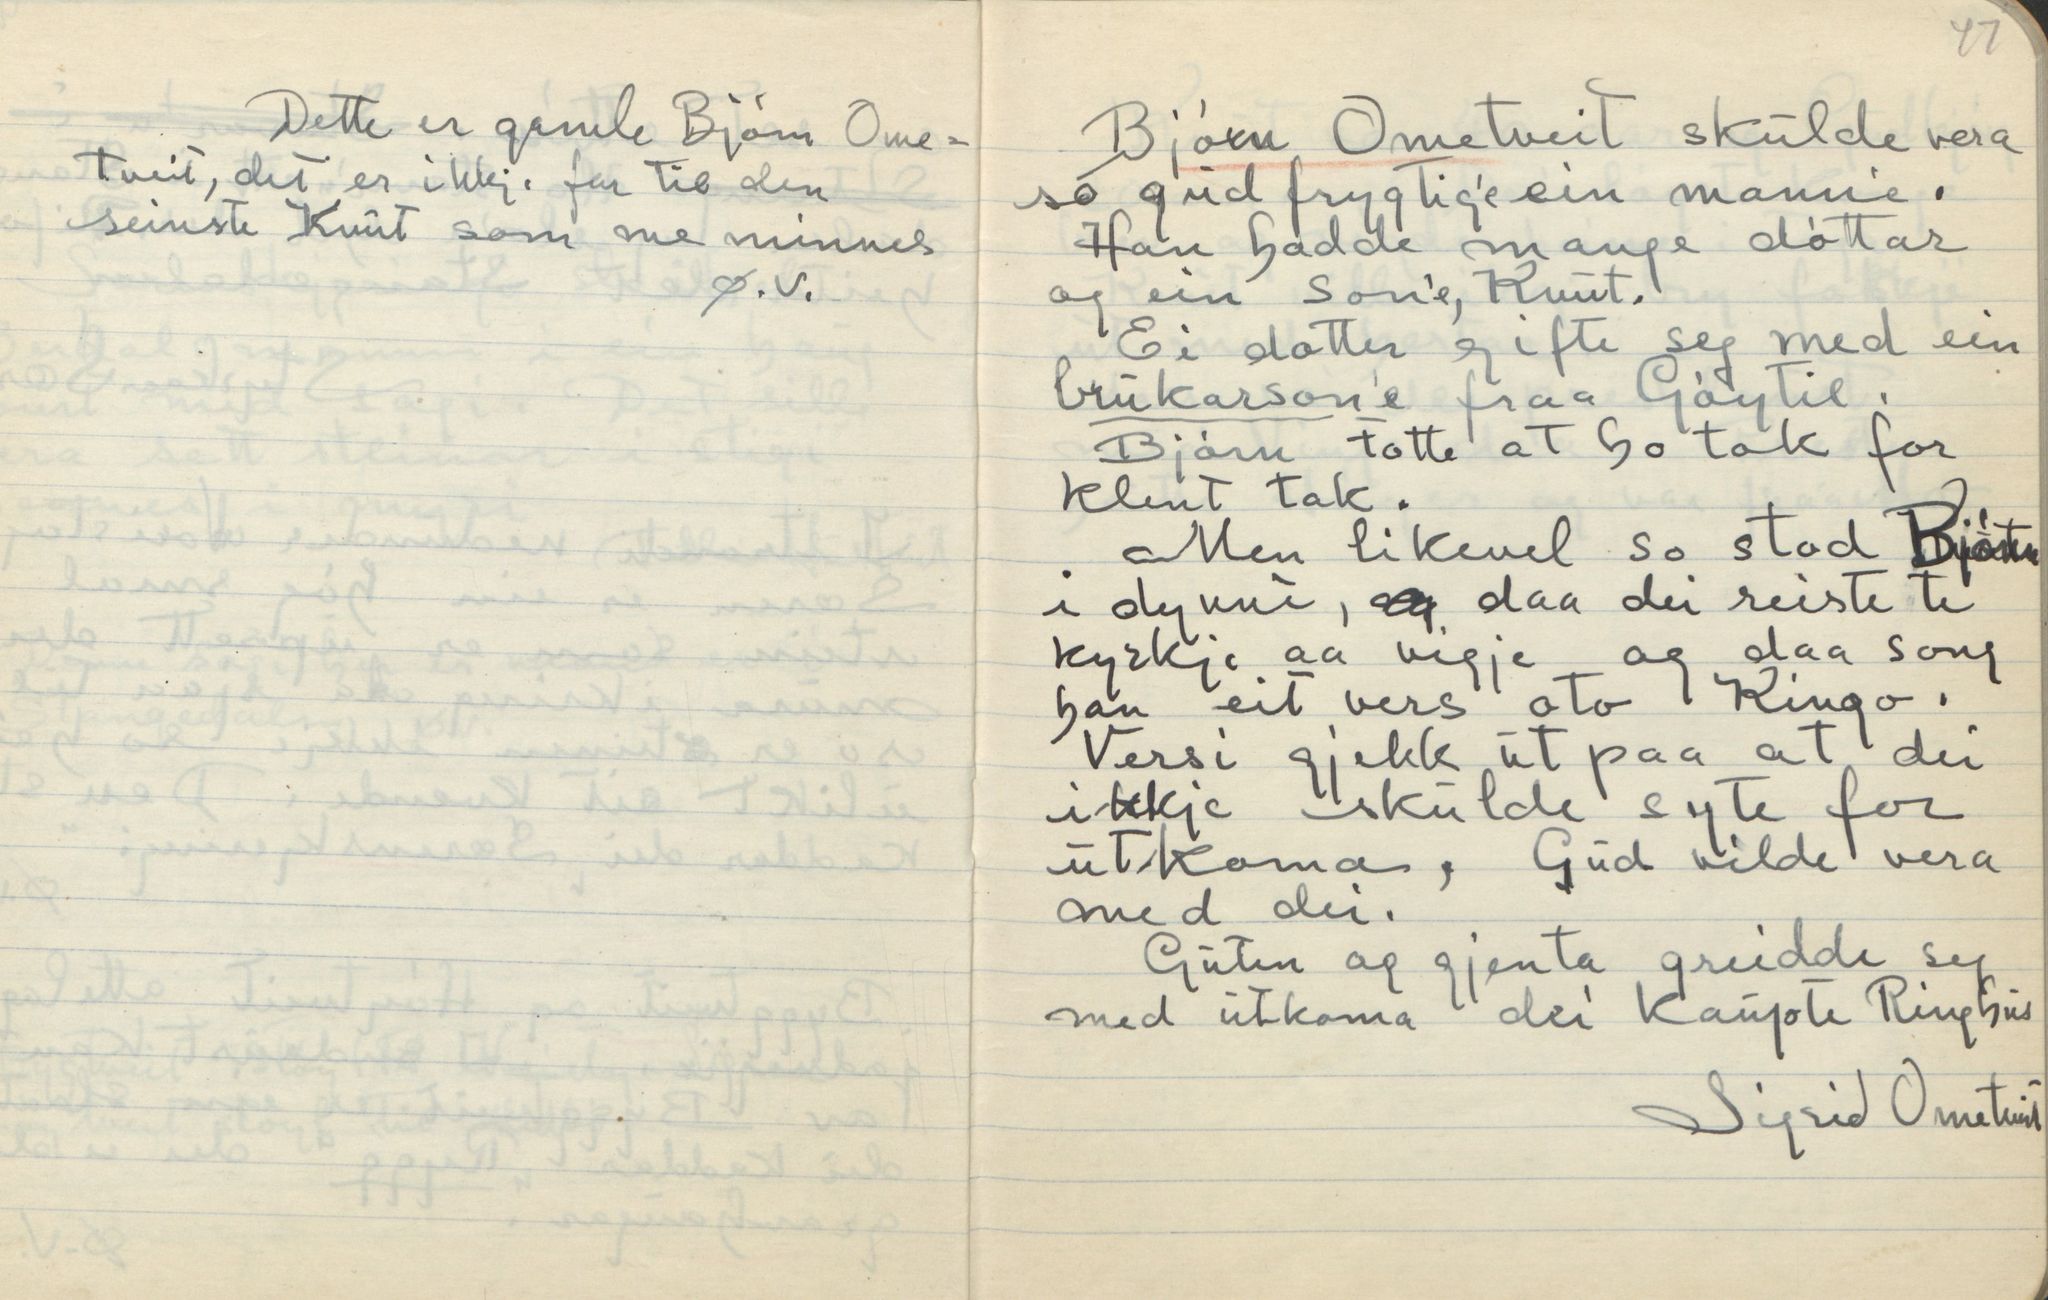 Dette er gamle Bjørn Ome=
tveit, det er ikkj. far til den
seinste Knut som me minnes
Ø.V.
47
Bjørn Ometveit skulde vera
so gudfrygtig'e ein mann'e.
Han hadde mange døttar
og ein son'e, Knut.
Ei dotter gifte seg med ein
brukarson'e fraa Gøytil.
Bjørn totte at ho tok for
klent tak.
Men likevel so stod Bjørn
i dynni, daa dei reiste te
kyrkje aa vigje og daa song
han eit vers oto Kingo.
Versi gjekk ut paa at dei
ikkje skulde syte for
utkoma, Gud vilde vera
med dei.
Guten og gjenta greidde seg
med utkoma dei kaupte Ringhus
Sigrid Ometveit